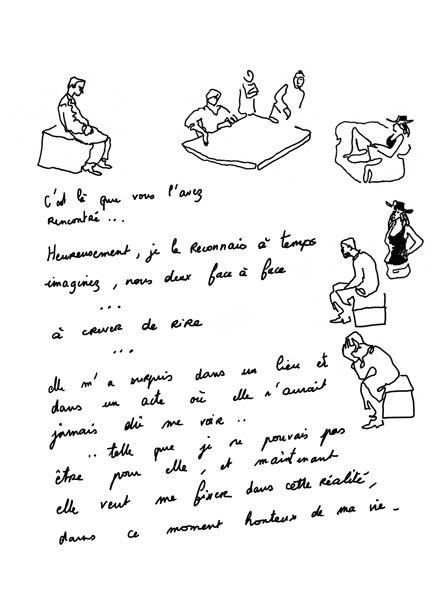 C'est là que vous l'avez
rencontré...
Heureusement, je la reconnais à temps
imaginez, nous deux face à face
...
à crever de rire
...
elle m'a surpris dans un lieu et
dans un acte où elle n'aurait
jamais dû me voir ..
.. telle que je ne pouvais pas
être pour elle, et maintenant
elle veut me fixer dans cette réalité,
dans ce moment honteux de ma vie -